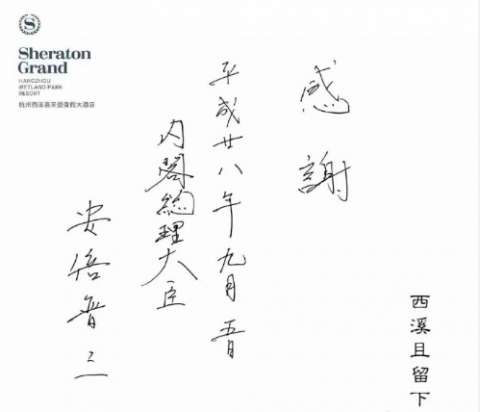 Sheraton
Grand
HANGZHOU
WETLAND PARK
RESORT
杭州西溪喜來登度假大酒店
感謝
平成廿八年九月五日
内閣総理大臣
安倍晋三
西溪且留下